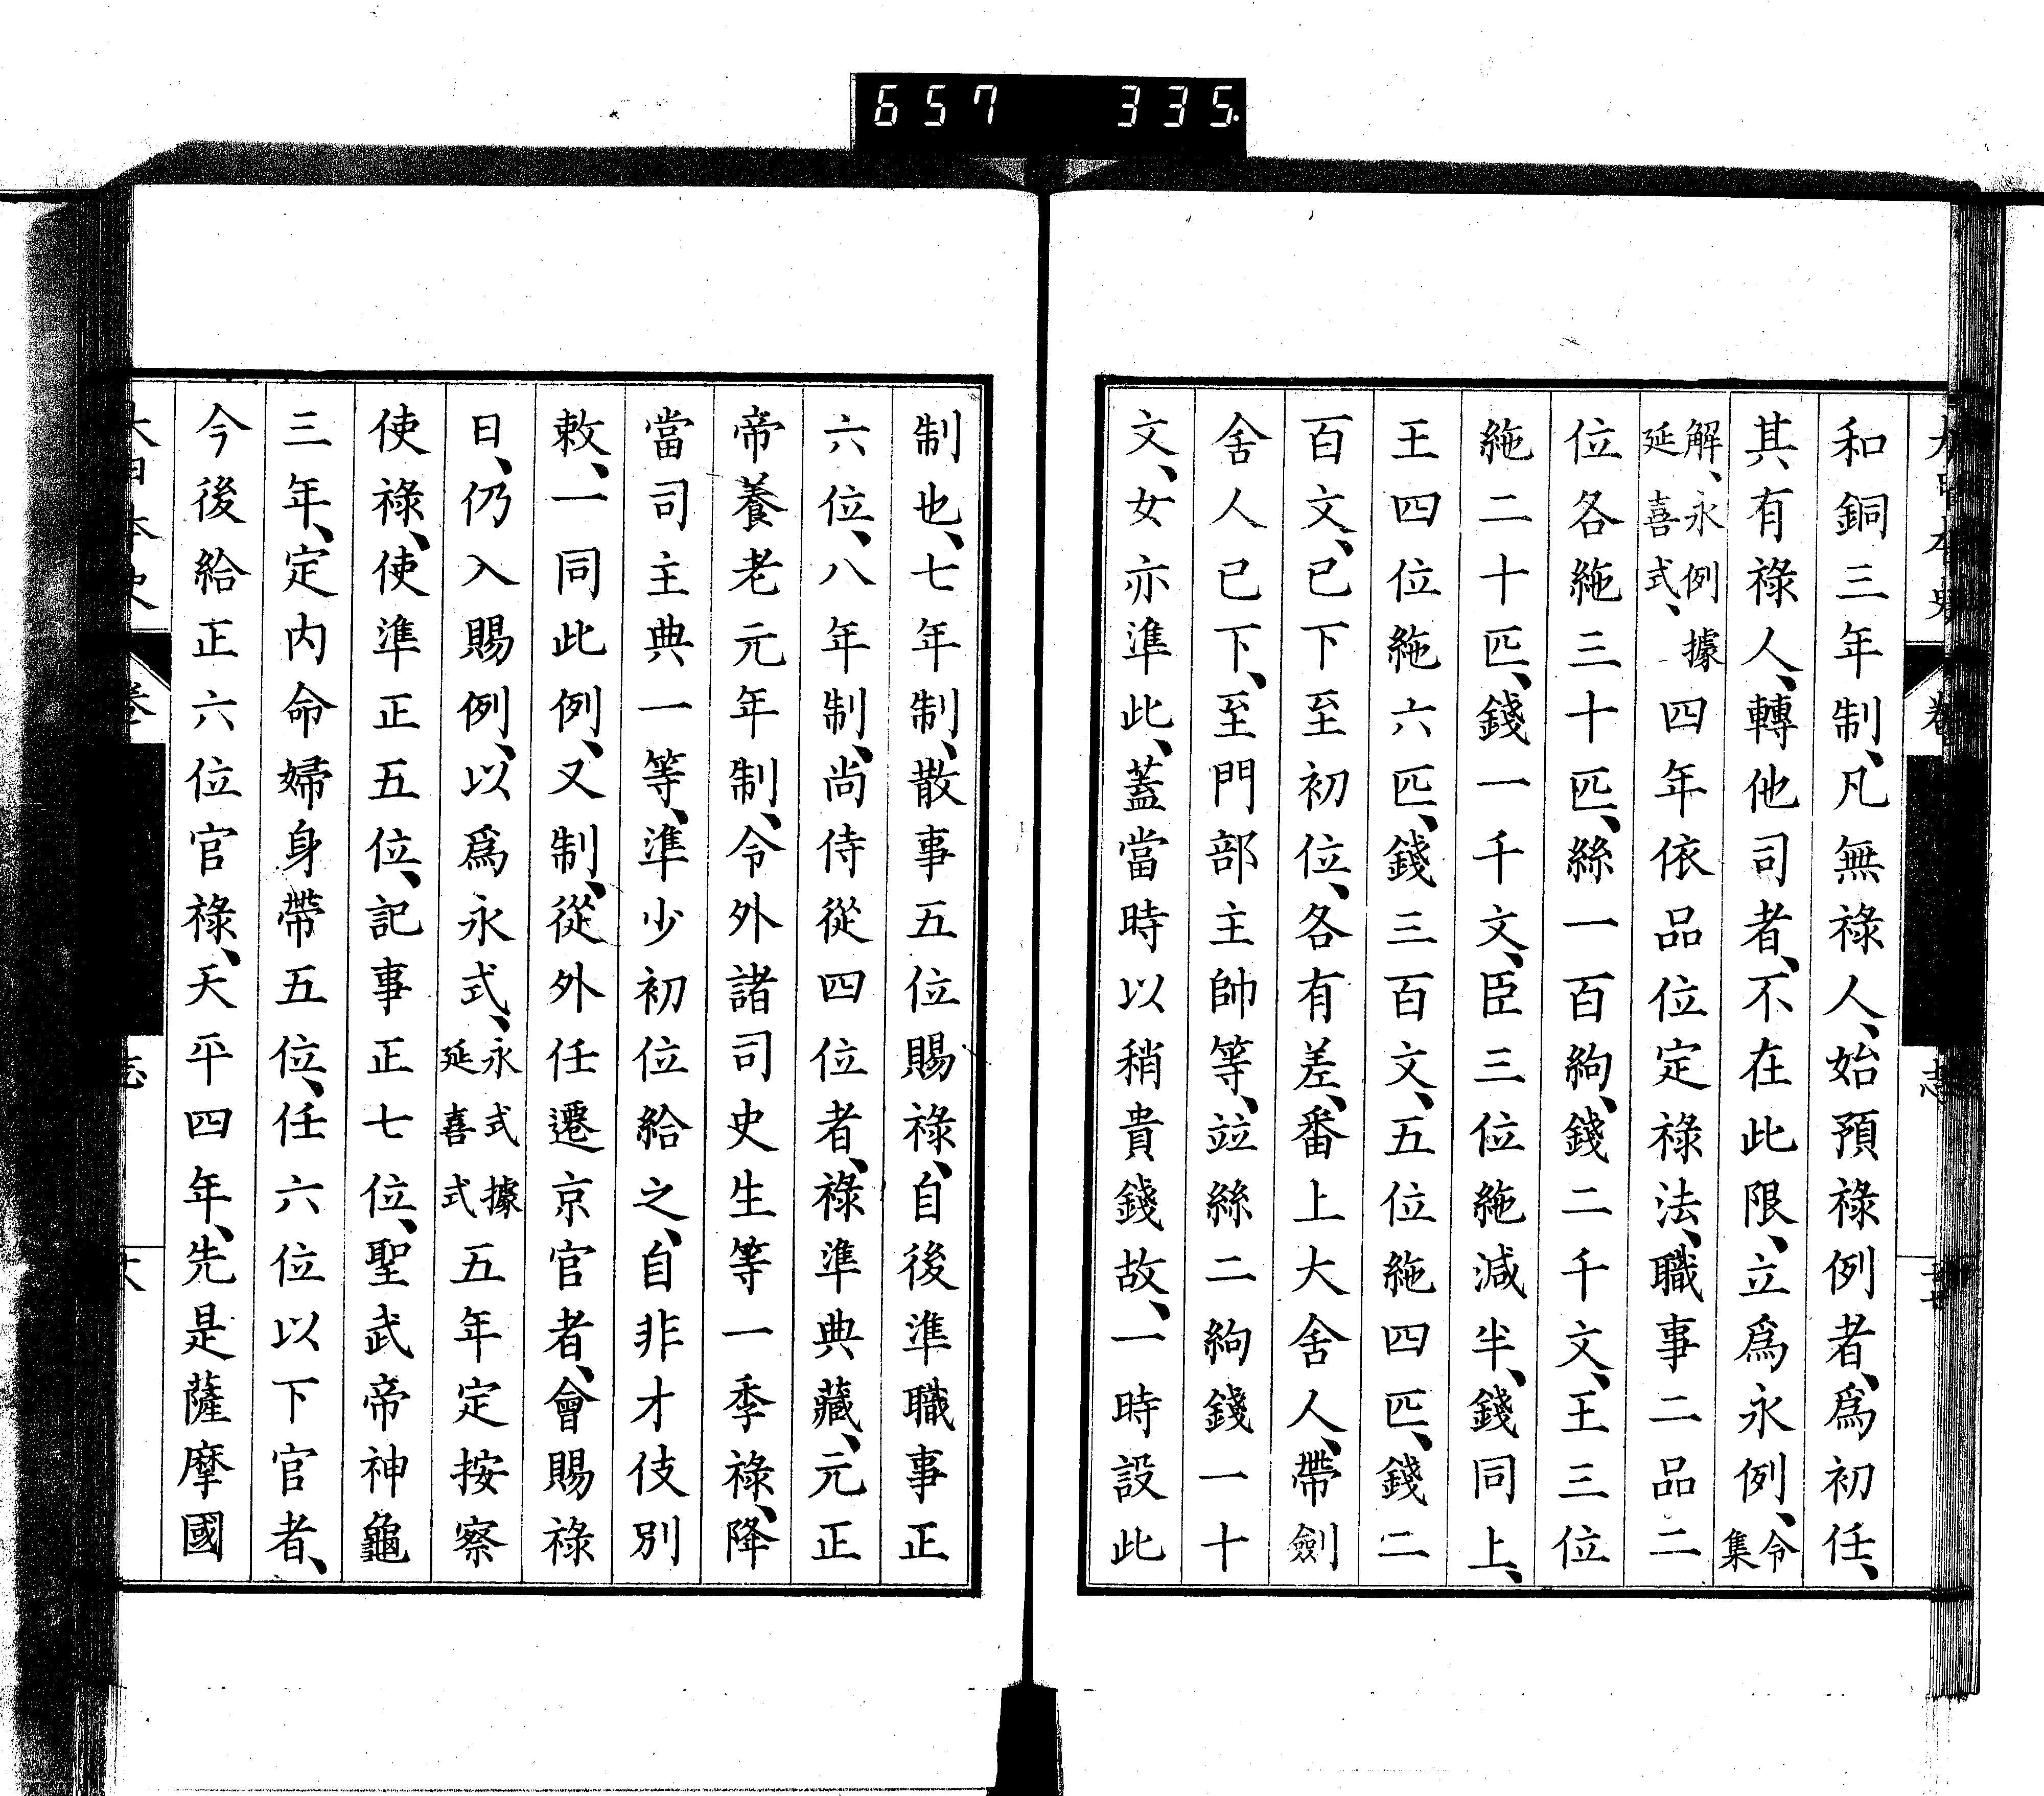 657 335
和銅三年制、凡無祿人、始預祿例者、爲初任、
其有祿人、轉他司者、不在此限、立爲永例、令集
解、永例據延喜式、四年依品位定祿法、職事二品二
位各絁三十匹、絲一百絇、錢二千文、王三位
絁二十匹、錢一千文、臣三位絁減半、錢同上、
王四位絁六匹、錢三百文、五位絁四匹、錢二
百文、已下至初位、各有差、番上大舍人、帶劍
舍人已下、至門部主帥等、竝絲二絇錢一十
文、女亦準此、蓋當時以稍貴錢故、一時設此
制也、七年制、散事五位賜祿、自後準職事正
六位、八年制、尚侍從四位者、祿準典藏、元正
帝養老元年制、令外諸司史生等一季祿、降
當司主典一等、準少初位給之、自非才伎別
敕、一同此例、又制、從外任遷京官者、會賜祿
日、仍入賜例、以爲永式、永式據延喜式五年定按察
使祿、使準正五位、記事正七位、聖武帝神龜
三年、定内命婦身帶五位、任六位以下官者、
今後給正六位官祿、天平四年、先是薩摩國